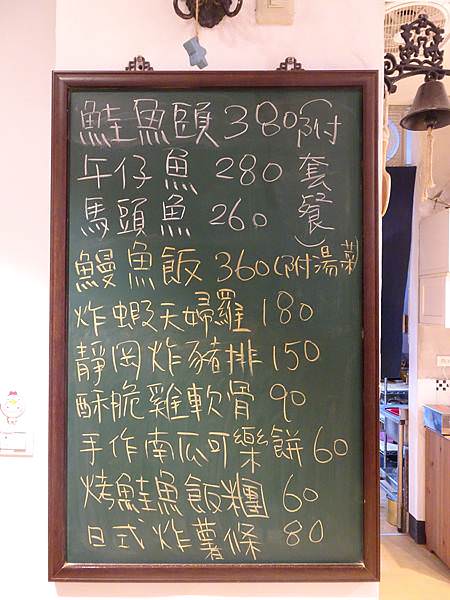 鮭魚頭 380 (附
午仔魚 280 套
馬頭魚 260 餐)
鰻魚飯 360 (附湯菜)
炸蝦天婦羅 180
靜岡炸豬排 150
酥脆雞軟骨 90
手作南瓜可樂餅 60
烤鮭魚飯糰 60
日式炸薯條 80